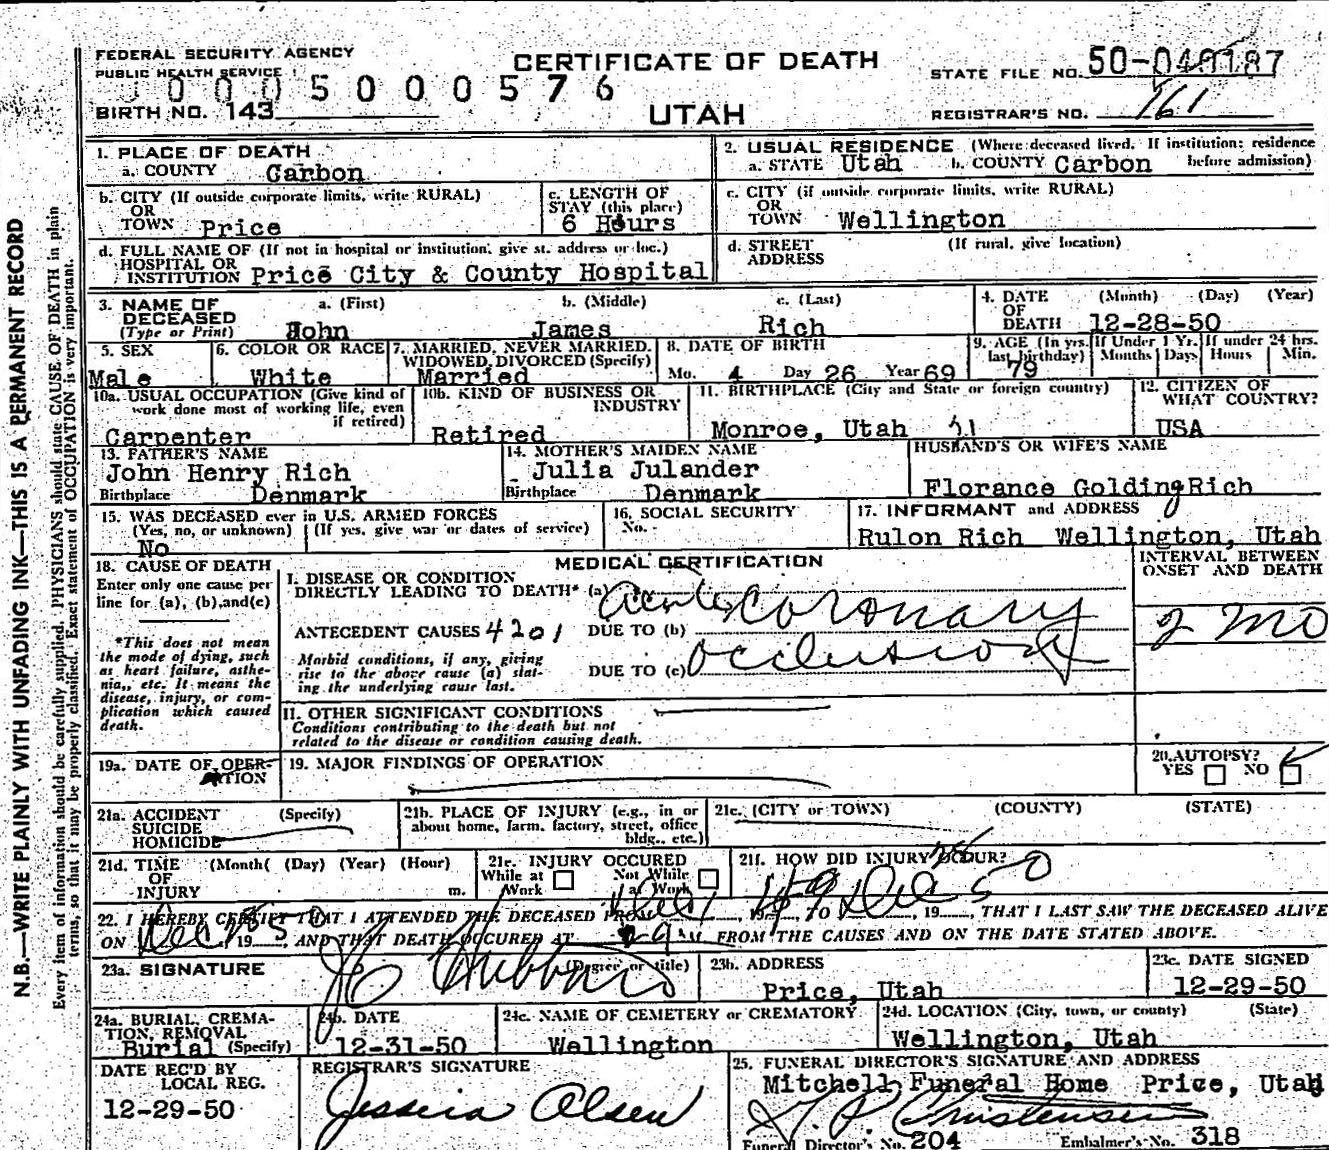 FEDERAL SECURITY AGENCY
PUBLIC HEALTH SERVICE
CERTIFICATE OF DEATH
STATE FILE NO. 50-040187
0005000576
BIRTH NO. 143
UTAH
REGISTRAR'S NO. 161
1. PLACE OF DEATH
a. COUNTY Carbon
2. USUAL RESIDENCE (Where deceased lived. If institution: residence before admission)
a. STATE Utah b. COUNTY Carbon
b. CITY (If outside corporate limits, write RURAL)
OR
TOWN Price
c. LENGTH OF
STAY (this place)
6 Hours
c. CITY (if outside corporate limits, write RURAL)
OR
TOWN Wellington
d. FULL NAME OF (If not in hospital or institution, give st. address or loc.)
HOSPITAL OR
INSTITUTION Price City & County Hospital
d. STREET (If rural, give location)
ADDRESS
3. NAME OF DECEASED (Type or Print)
a. (First) b. (Middle) c. (Last)
John James Rich
4. DATE OF DEATH (Month) (Day) (Year)
12-28-50
5. SEX
Male
6. COLOR OR RACE
White
7. MARRIED, NEVER MARRIED,
WIDOWED, DIVORCED (Specify)
Married
8. DATE OF BIRTH
Mo. 4 Day 26 Year 69
9. AGE (In yrs. last birthday)
79
If Under 1 Yr.
Months Days
If under 24 hrs.
Hours Min.
10a. USUAL OCCUPATION (Give kind of
work done most of working life, even
if retired)
Carpenter
10b. KIND OF BUSINESS OR
INDUSTRY
Retired
11. BIRTHPLACE (City and State or foreign country)
Monroe, Utah
12. CITIZEN OF
WHAT COUNTRY?
USA
13. FATHER'S NAME
John Henry Rich
Birthplace Denmark
14. MOTHER'S MAIDEN NAME
Julia Julander
Birthplace Denmark
HUSBAND'S OR WIFE'S NAME
Florance Golding Rich
15. WAS DECEASED ever in U.S. ARMED FORCES
(Yes, no, or unknown) (If yes, give war or dates of service)
No
16. SOCIAL SECURITY
No.
17. INFORMANT and ADDRESS
Rulon Rich Wellington, Utah
18. CAUSE OF DEATH
Enter only one cause per
line for (a), (b), and (c)
*This does not mean
the mode of dying, such
as heart failure, asthe-
nia,, etc. It means the
disease, injury, or com-
plication which caused
death.
MEDICAL CERTIFICATION
INTERVAL BETWEEN
ONSET AND DEATH
I. DISEASE OR CONDITION
DIRECTLY LEADING TO DEATH* (a) acute coronary
ANTECEDENT CAUSES 4201 DUE TO (b)
2 mo
Morbid conditions, if any, giving
rise to the above cause (a) stat-
ing the underlying cause last.
DUE TO (c) Occlusion
II. OTHER SIGNIFICANT CONDITIONS
Conditions contributing to the death but not
related to the disease or condition causing death.
19a. DATE OF OPER-
ATION
19. MAJOR FINDINGS OF OPERATION
20. AUTOPSY?
YES NO
21a. ACCIDENT (Specify)
SUICIDE
HOMICIDE
21b. PLACE OF INJURY (e.g., in or
about home, farm, factory, street, office
bldg., etc.)
21c. (CITY or TOWN) (COUNTY) (STATE)
21d. TIME (Month( (Day) (Year) (Hour)
OF
INJURY m.
21e. INJURY OCCURED
While at Work Not While at Work
21f. HOW DID INJURY OCCUR?
22. I HEREBY CERTIFY THAT I ATTENDED THE DECEASED FROM Dec 1, 19 49 TO Dec 28, 19 50, THAT I LAST SAW THE DECEASED ALIVE
ON Dec 28 19 50, AND THAT DEATH OCCURED AT 9 A M FROM THE CAUSES AND ON THE DATE STATED ABOVE.
23a. SIGNATURE (Degree or title)
Hubbard
23b. ADDRESS
Price, Utah
23c. DATE SIGNED
12-29-50
24a. BURIAL, CREMA-
TION, REMOVAL
Burial (Specify)
24b. DATE
12-31-50
24c. NAME OF CEMETERY or CREMATORY
Wellington
24d. LOCATION (City, town, or county) (State)
Wellington, Utah
DATE REC'D BY
LOCAL REG.
12-29-50
REGISTRAR'S SIGNATURE
Jessica Olsen
25. FUNERAL DIRECTOR'S SIGNATURE AND ADDRESS
Mitchell Funeral Home Price, Utah
Christensen
Funeral Director's No. 204 Embalmer's No. 318
N.B.—WRITE PLAINLY WITH UNFADING INK—THIS IS A PERMANENT RECORD
Every item of information should be carefully supplied. PHYSICIANS should state CAUSE OF DEATH in plain
terms, so that it may be properly classified. Exact statement of OCCUPATION is very important.